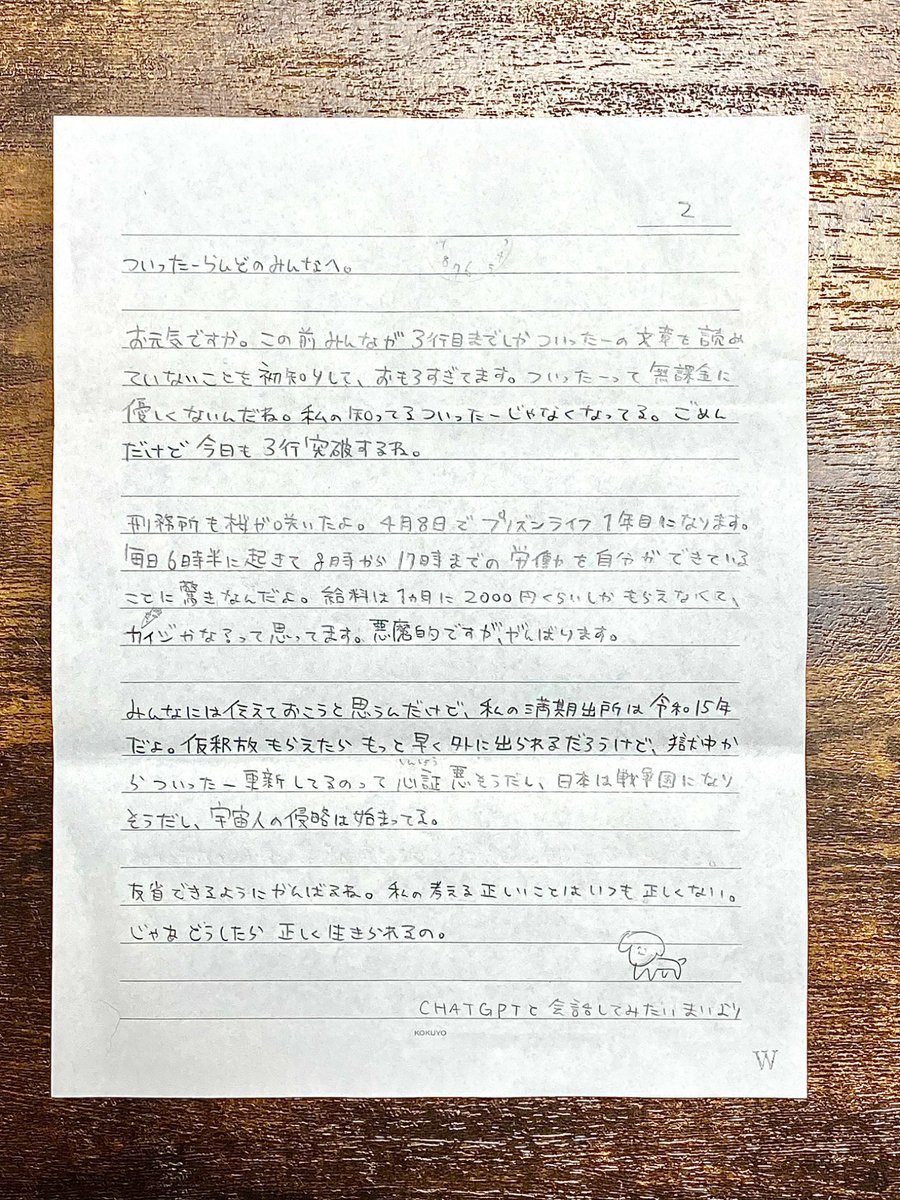 2
ついったーらんどのみんなへ。
お元気ですか。この前みんなが3行目までしかついったーの文章を読め
ていないことを初知りして、おもろすぎてます。ついったーって無課金に
優しくないんだね。私の知ってるついったーじゃなくなってる。ごめん
だけど今日も3行突破するね。
刑務所も桜が咲いたよ。4月8日でプリズンライフ1年目になります。
毎日6時半に起きて8時から17時までの労働力を自分ができている
ことに驚きなんだよ。給料は1ヵ月に2000円くらいしかもらえなくて、
カイジかなろって思ってます。悪魔的ですが、がんばります。
みんなには伝えておこうと思うんだけど、私の満期出所は令和15年
だよ。仮釈放もらえたらもっと早く外に出られるだろうけど、獄中か
しんしょう
らついったー更新してるのって心証悪そうだし、日本は戦争国になり
そうだし、宇宙人の侵略は始まってる。
反省できるようにがんばるね。私の考える正しいことはいつも正しくない。
じゃあどうしたら正しく生きられるの。
CHATGPTと会話してみたいまいより
KOKUYO
W